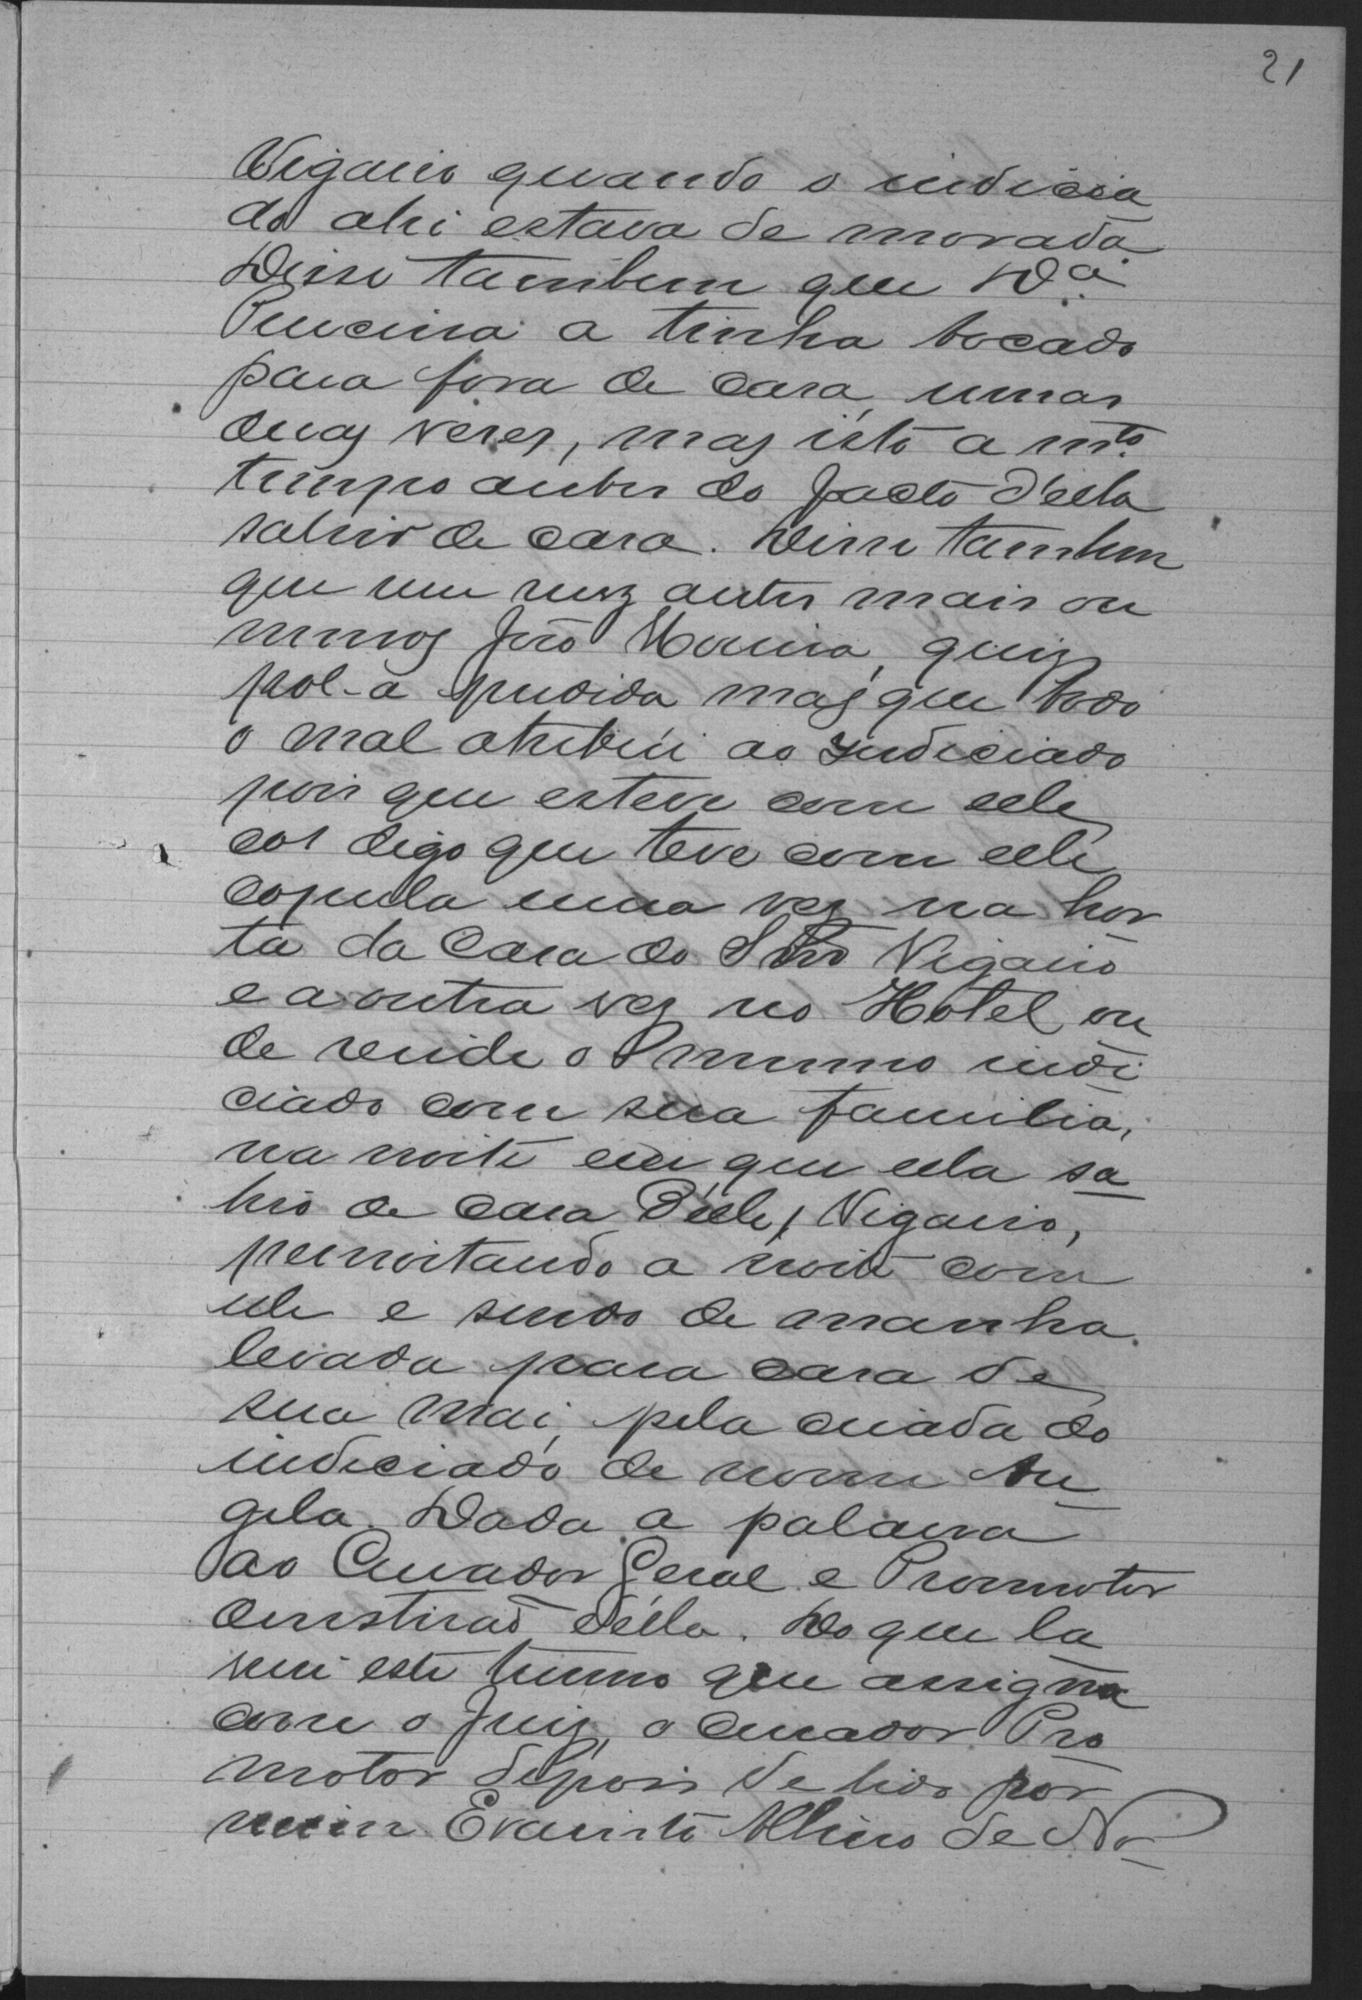 21
Vigario quando o indicia
do ahi estava de morada
Disse tambem que Dª
Pureina a tinha tocado
para fora de casa, umas
duas veses, mas isto a mto
tempo antes do facto d'ella
sahir de casa. Disse tambem
que um mez antes mais ou
menos João Moreira, quiz
pol-a perdida mas que todo
o mal atribúi ao indiciado
pois que esteve com elle
cos digo que teve com elle
copula uma vez na hor
ta da Casa do Snro Vigario
e a outra vez no Hotel on
de reside o mesmo indi
ciado com sua familia,
na noite em que ella sa
hio de casa d'elle, Vigario,
pernoitando a noite com
elle e sendo de manha
levada para casa de
sua mai, pela criada do
indiciado de nome An
gela. Dada a palavra
ao Curador Geral e Promotor
desistirão d'ella. Do que la
vrei este termo que assigna
com o Juiz, o curador Pro
motor depois de lido por
mim Evaristo Albino de No